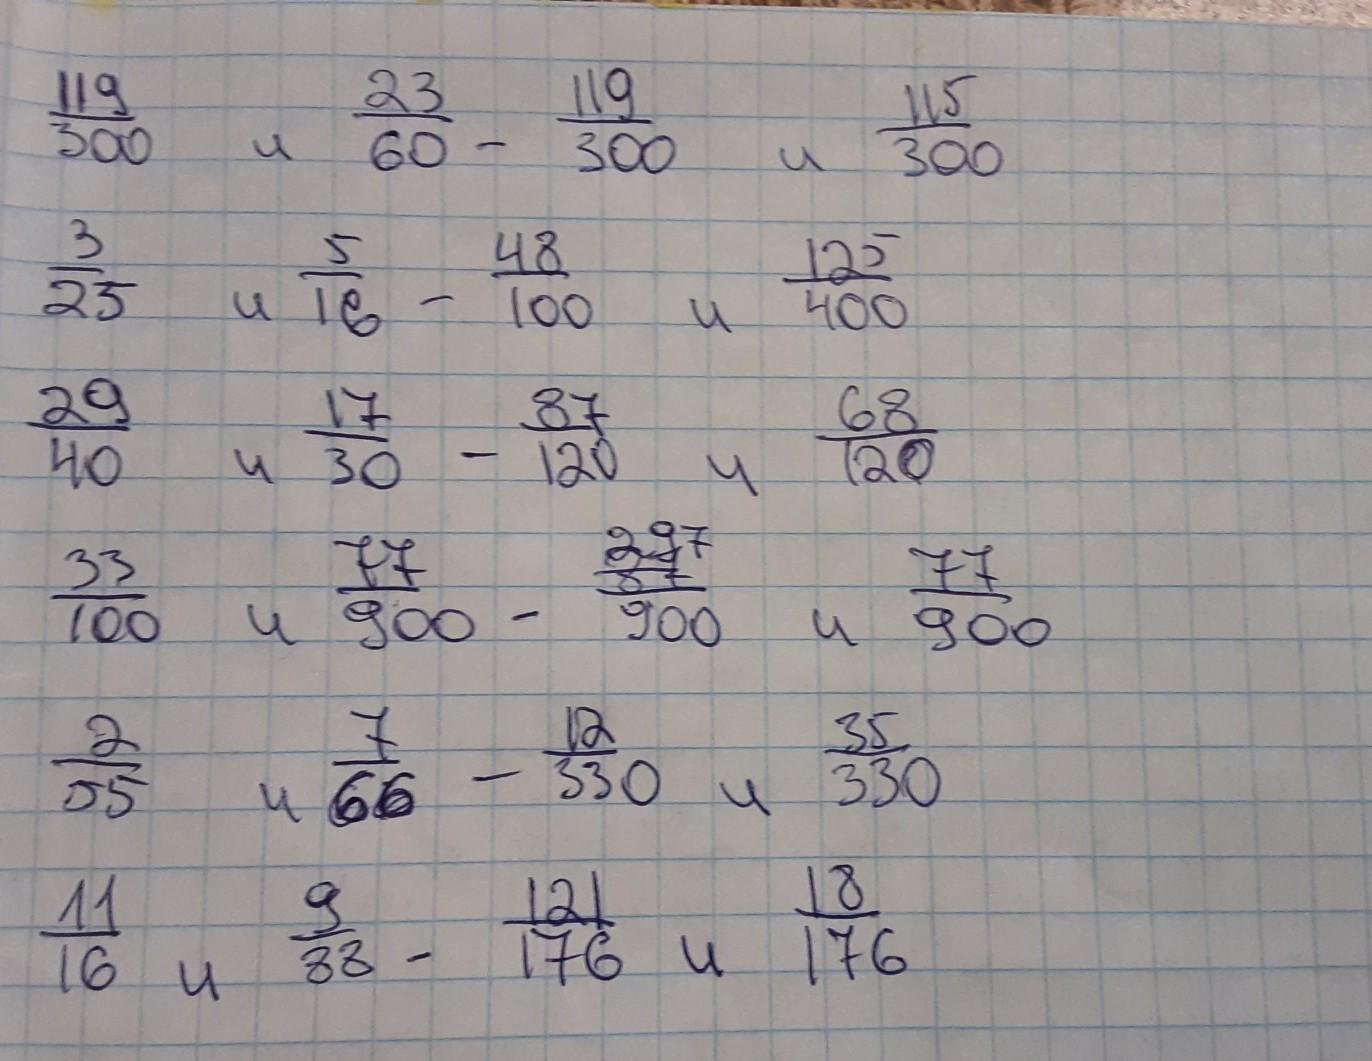 119/300 и 23/60 - 119/300 и 115/300
3/25 и 5/16 - 48/100 и 125/400
29/40 и 17/30 - 87/120 и 68/120
33/100 и 77/900 - 297/900 и 77/900
2/55 и 7/66 - 12/330 и 35/330
11/16 и 9/88 - 121/176 и 18/176